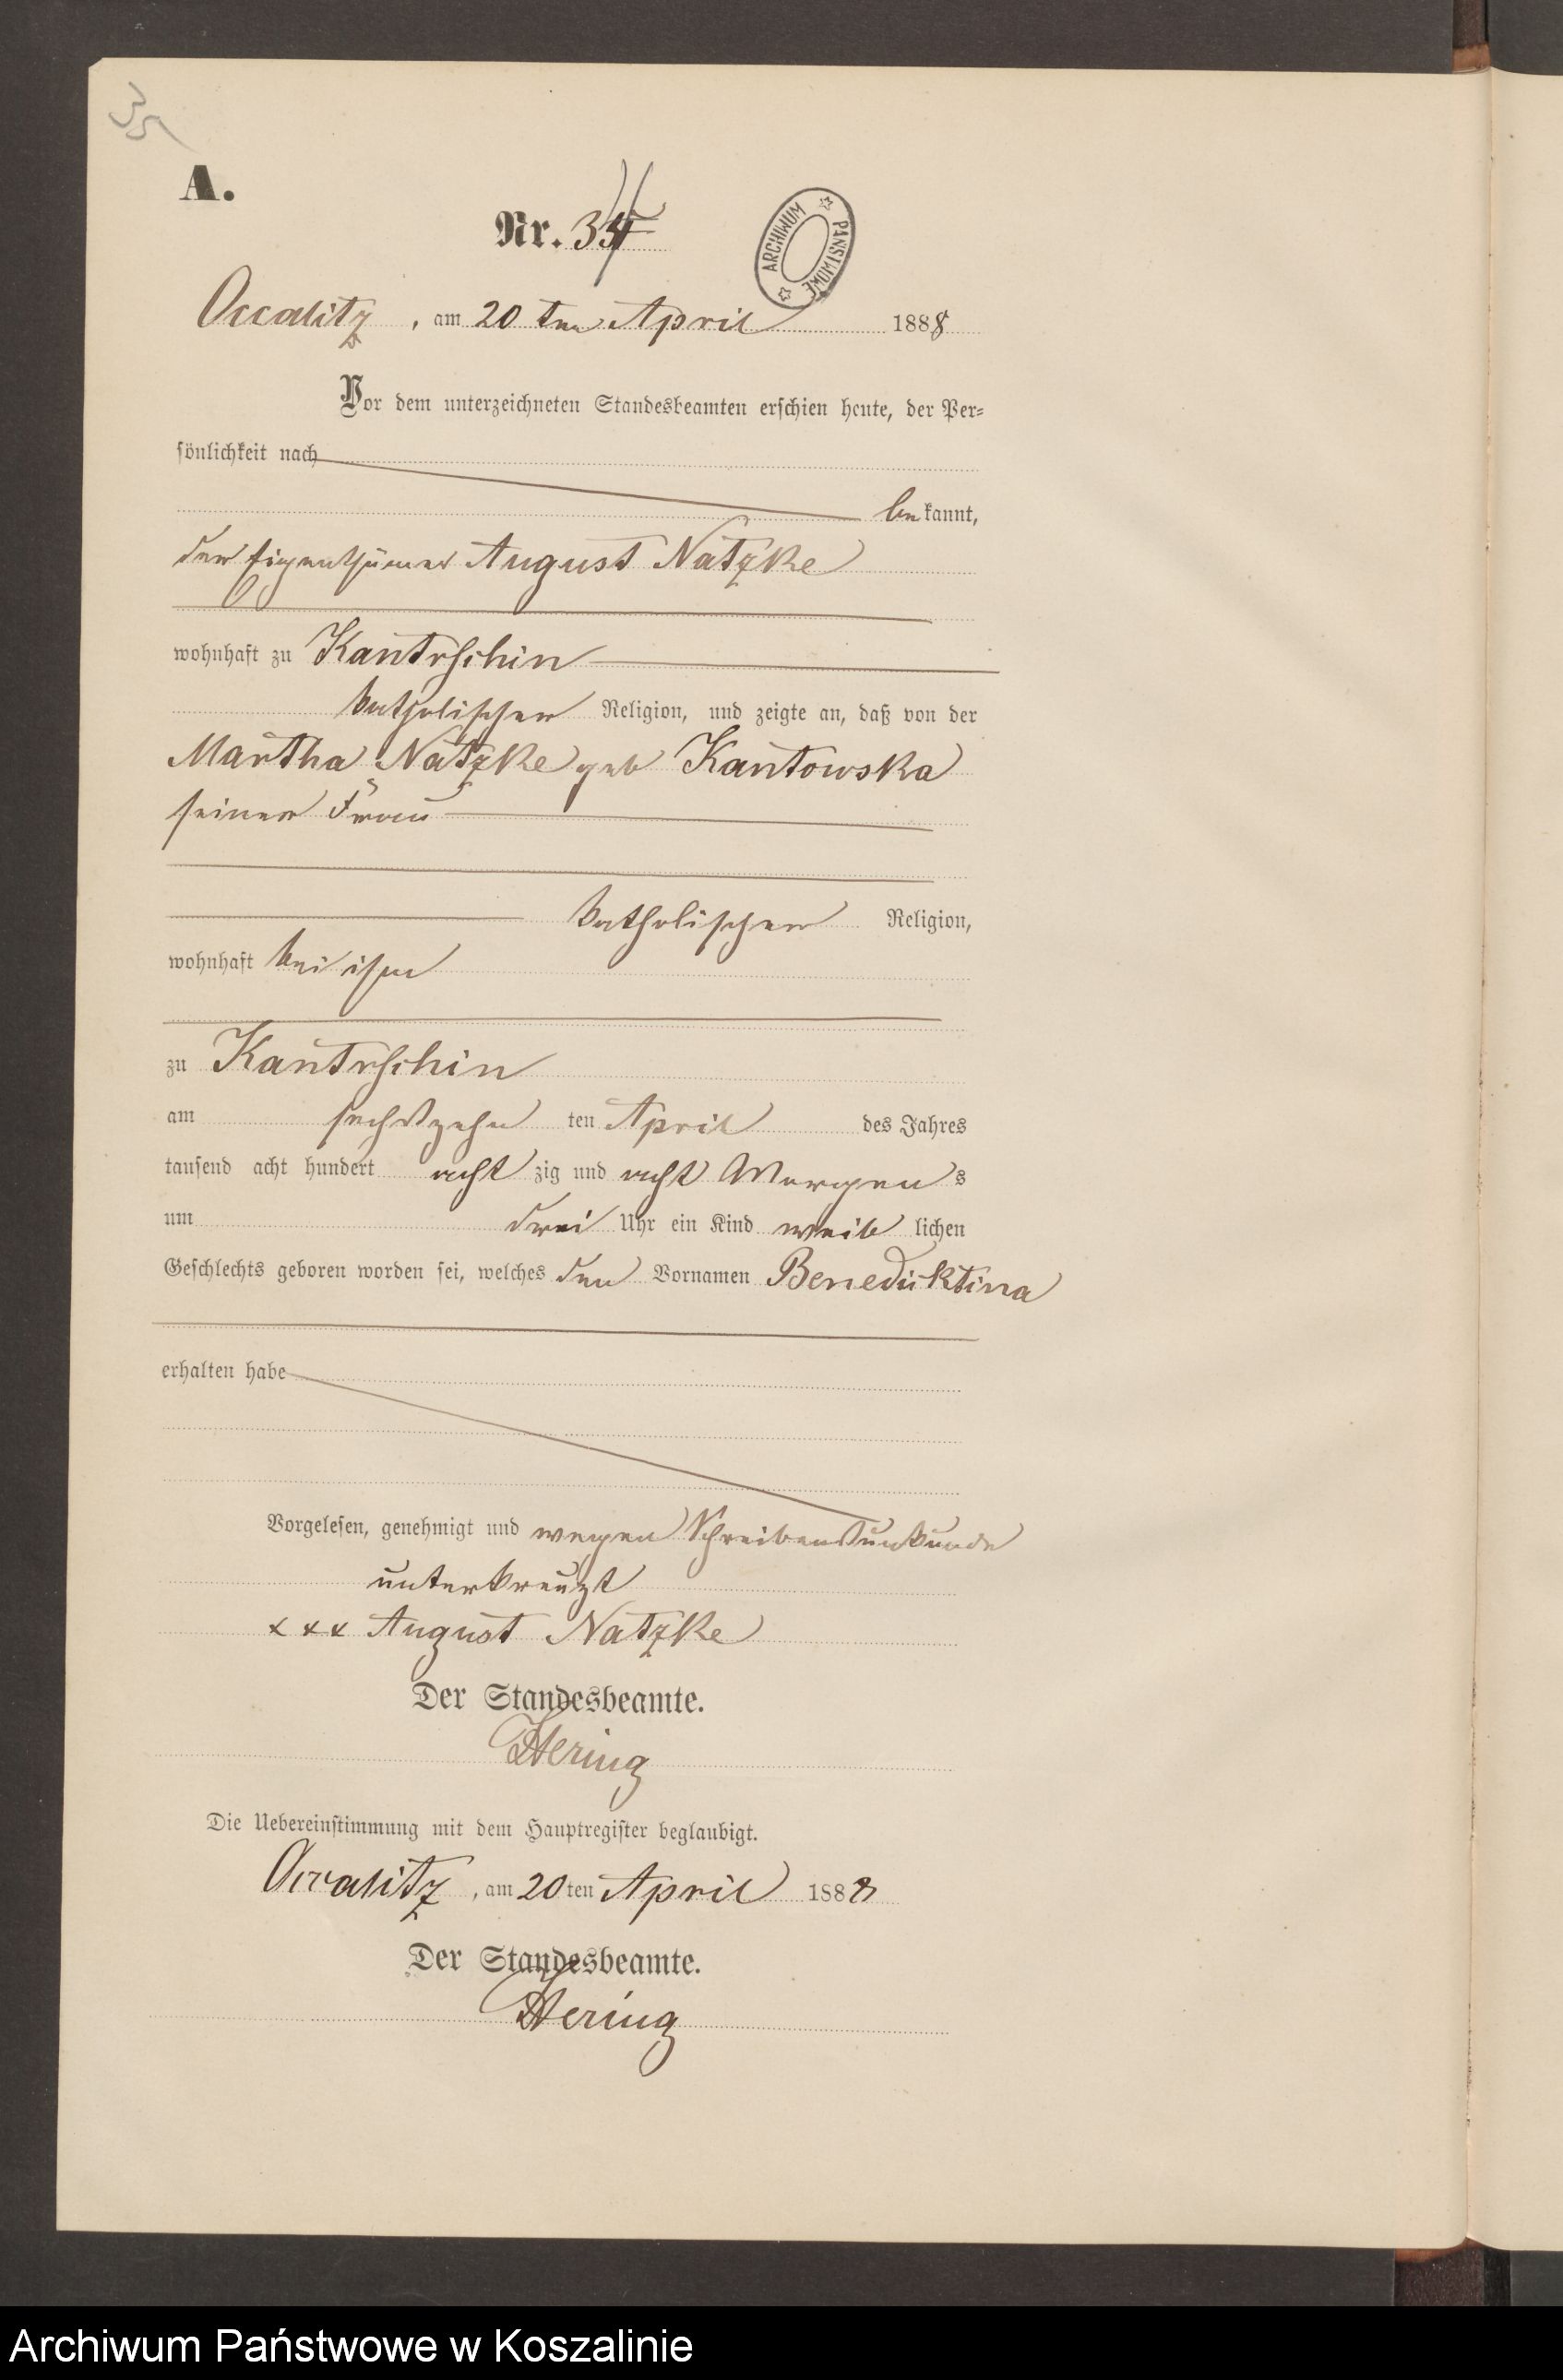 A.
Nr. 34
ARCHIWUM PAŃSTWOWE
Occalitz, am 20 ten April 1888
Vor dem unterzeichneten Standesbeamten erschien heute, der Per-
sönlichkeit nach
bekannt,
der Eigenthümer August Natzke
wohnhaft zu Kantrschin
katholischer Religion, und zeigte an, daß von der
Martha Natzke geb Kantowska
seiner Frau
katholischer Religion,
wohnhaft bei ihm
zu Kantrschin
am sechszehn ten April des Jahres
tausend acht hundert acht zig und acht Morgens
um drei Uhr ein Kind weib lichen
Geschlechts geboren worden sei, welches den Vornamen Benediktina
erhalten habe
Vorgelesen, genehmigt und wegen Schreibensunkunde
unterkreuzt
xxx August Natzke
Der Standesbeamte.
Hering
Die Uebereinstimmung mit dem Hauptregister beglaubigt.
Occalitz, am 20 ten April 1888
Der Standesbeamte.
Hering
Archiwum Państwowe w Koszalinie